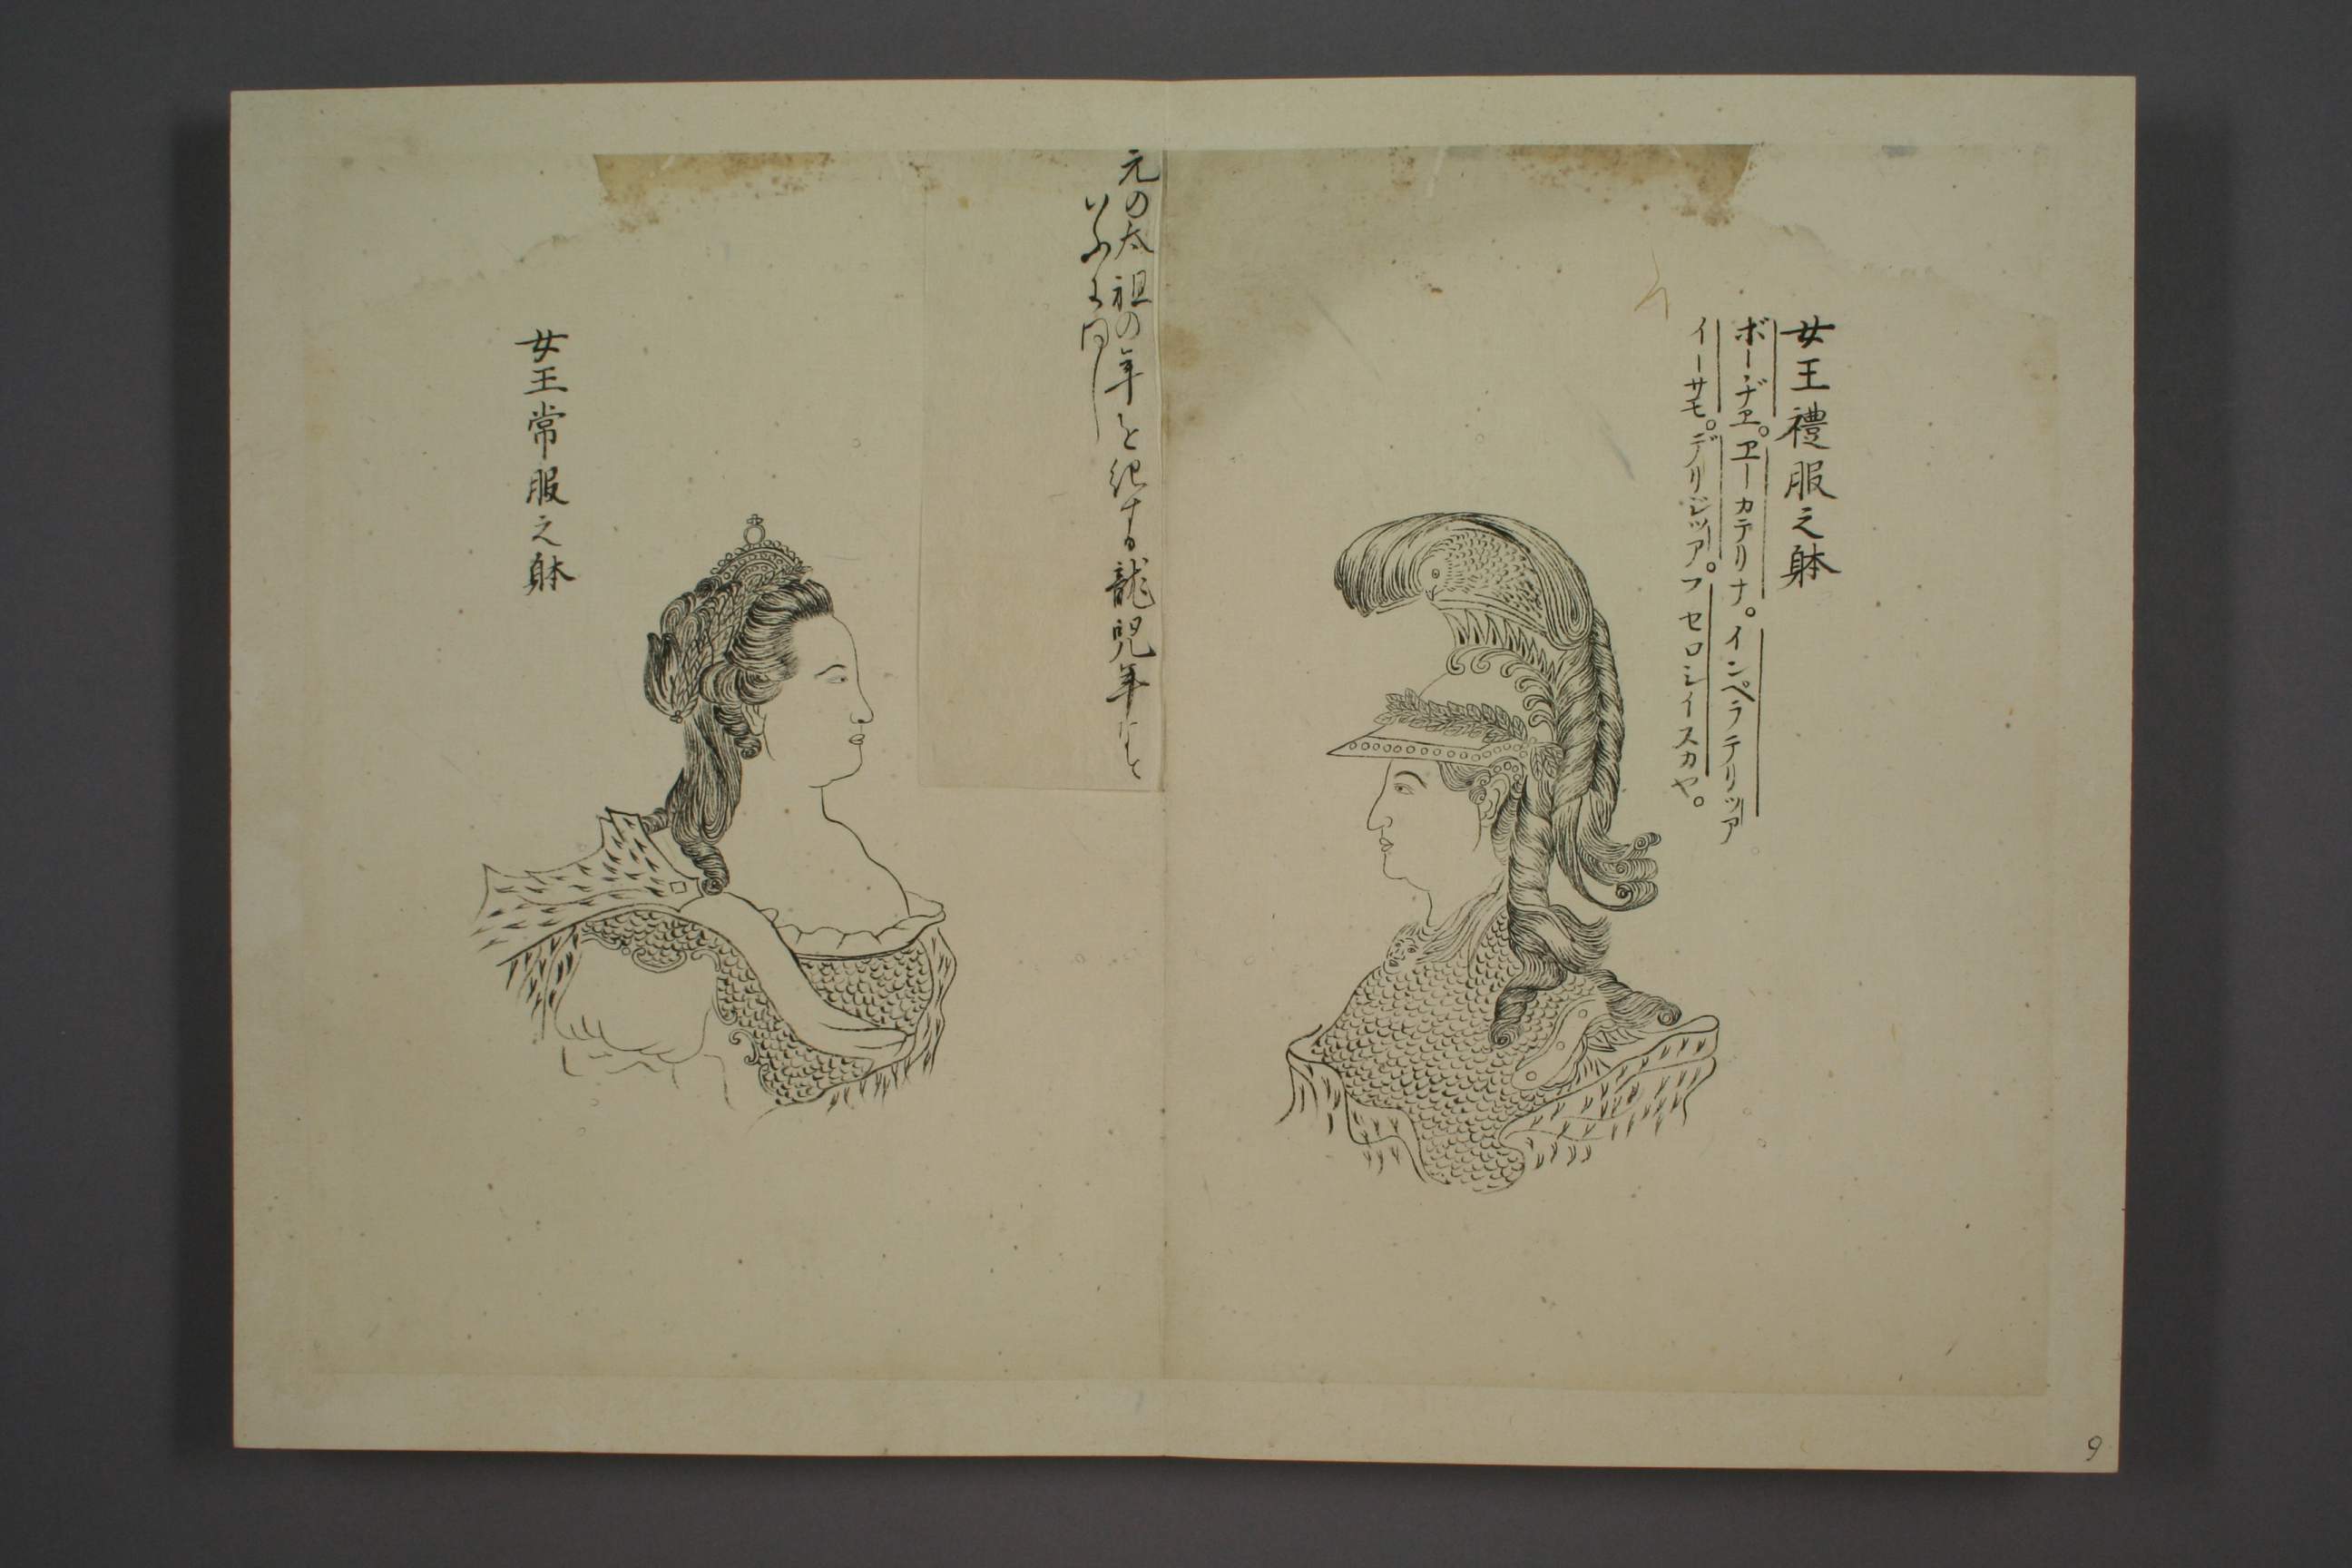 女王禮服之躰
ボーヂヱ。ヱーカテリナ。インペラテリツア
イーサモ。デリジツア。フセロシイスカヤ。
元の太祖の年を紀する龍児年など
いふに同し
女王常服之躰
9